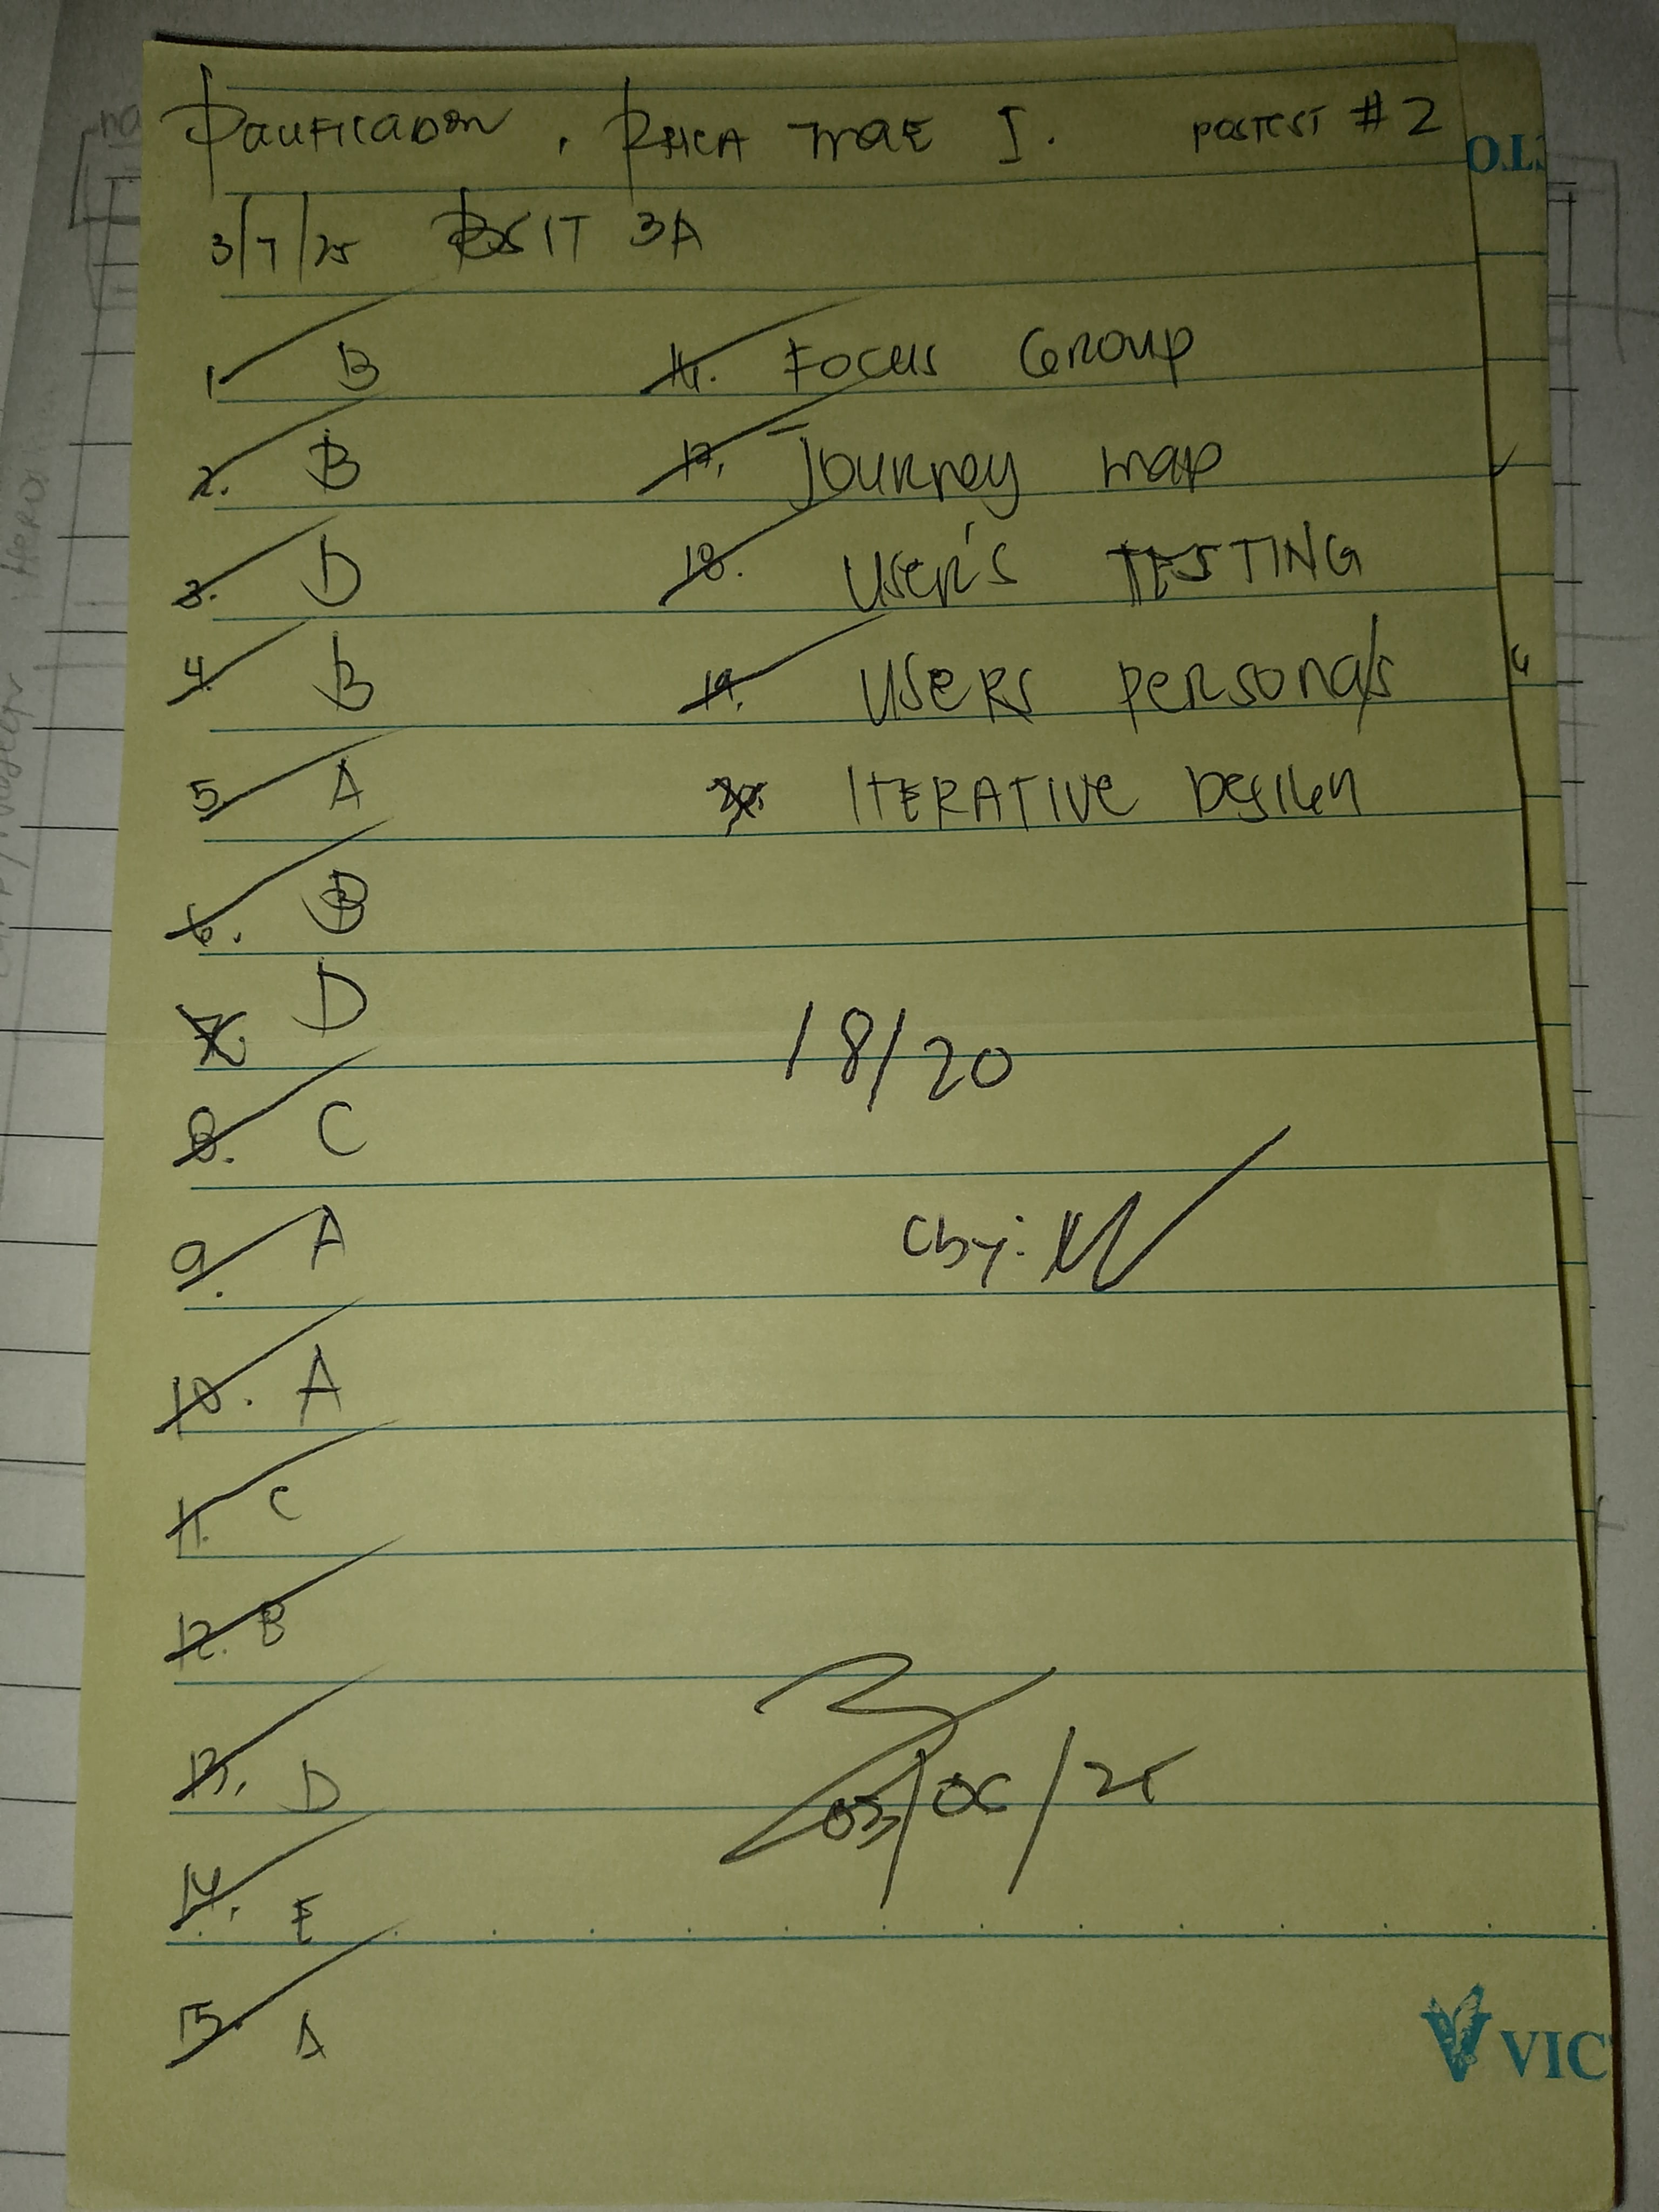 Pacificador, Rhea Mae I. POSTEST #2
3/7/25 BSIT 3A
1. B
2. B
3. D
4. B
5. A
6. B
7. D
8. C
9. A
10. A
11. C
12. B
13. D
14. E
15. A
16. Focus Group
17. Journey map
18. User's TESTING
19. Users personas
20. ITERATIVE Design
18/20
Cby:
VIC